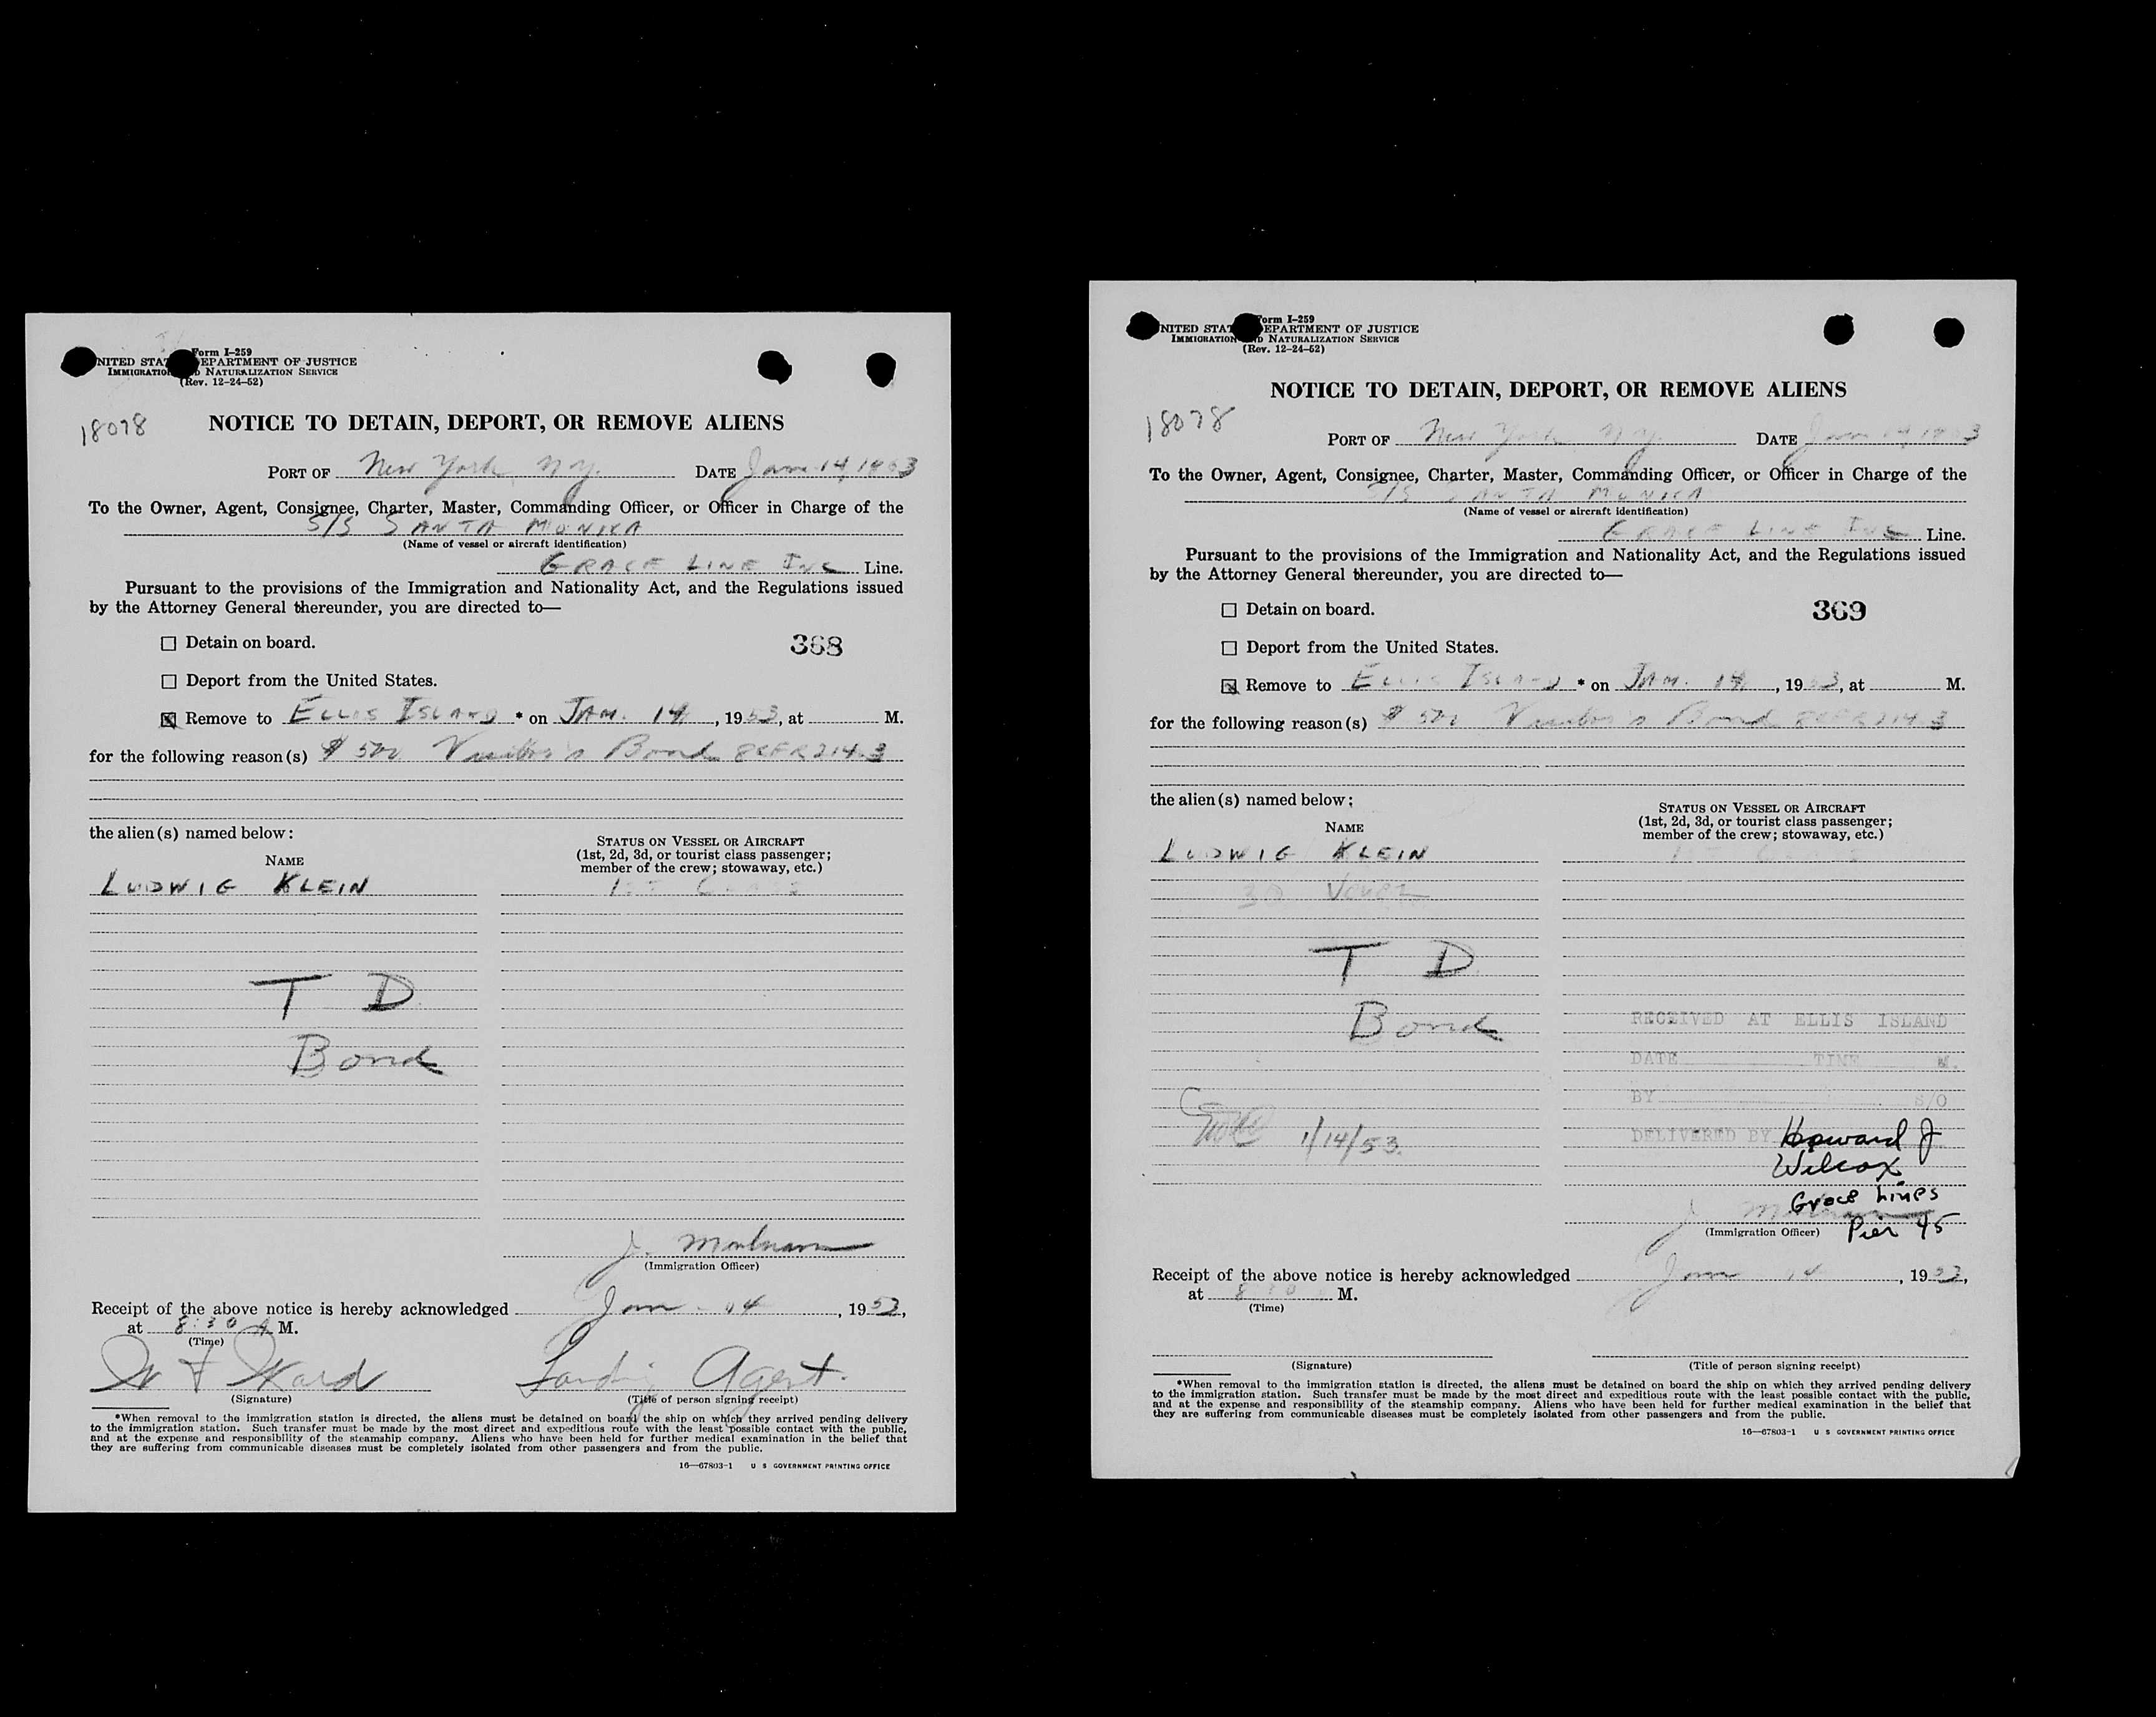 Form I-259
UNITED STATES DEPARTMENT OF JUSTICE
IMMIGRATION AND NATURALIZATION SERVICE
(Rev. 12-24-52)
18078
NOTICE TO DETAIN, DEPORT, OR REMOVE ALIENS
PORT OF New York, N.Y. DATE Jan 14, 1953
To the Owner, Agent, Consignee, Charter, Master, Commanding Officer, or Officer in Charge of the
S/S SANTA MONICA
(Name of vessel or aircraft identification)
GRACE LINE INC Line.
Pursuant to the provisions of the Immigration and Nationality Act, and the Regulations issued
by the Attorney General thereunder, you are directed to—
☐ Detain on board.
368
☐ Deport from the United States.
☒ Remove to ELLIS ISLAND * on JAN. 14, 1953, at M.
for the following reason(s) $500 Visitor's Bond 8CFR214.3
the alien(s) named below:
STATUS ON VESSEL OR AIRCRAFT
(1st, 2d, 3d, or tourist class passenger;
member of the crew; stowaway, etc.)
NAME
LUDWIG KLEIN 1ST CLASS
T D
Bond
J.
(Immigration Officer)
Receipt of the above notice is hereby acknowledged Jan 14, 1953,
at 8:30 A M.
(Time)
W F Ward Landing Agent.
(Signature) (Title of person signing receipt)
*When removal to the immigration station is directed, the aliens must be detained on board the ship on which they arrived pending delivery
to the immigration station. Such transfer must be made by the most direct and expeditious route with the least possible contact with the public,
and at the expense and responsibility of the steamship company. Aliens who have been held for further medical examination in the belief that
they are suffering from communicable diseases must be completely isolated from other passengers and from the public.
16—67803-1 U S GOVERNMENT PRINTING OFFICE
Form I-259
UNITED STATES DEPARTMENT OF JUSTICE
IMMIGRATION AND NATURALIZATION SERVICE
(Rev. 12-24-52)
NOTICE TO DETAIN, DEPORT, OR REMOVE ALIENS
18078
PORT OF New York N.Y. DATE Jan 14, 1953
To the Owner, Agent, Consignee, Charter, Master, Commanding Officer, or Officer in Charge of the
S/S SANTA MONICA
(Name of vessel or aircraft identification)
GRACE LINE INC Line.
Pursuant to the provisions of the Immigration and Nationality Act, and the Regulations issued
by the Attorney General thereunder, you are directed to—
☐ Detain on board.
369
☐ Deport from the United States.
☒ Remove to ELLIS ISLAND * on JAN. 14, 1953, at M.
for the following reason(s) $500 Visitor's Bond 8CFR214.3
the alien(s) named below:
STATUS ON VESSEL OR AIRCRAFT
(1st, 2d, 3d, or tourist class passenger;
member of the crew; stowaway, etc.)
NAME
LUDWIG KLEIN 1ST CLASS
30
T D
Bond
RECEIVED AT ELLIS ISLAND
DATE TIME M.
BY S/O
1/14/53.
DELIVERED BY Howard J
Wilcox
Grace Lines
J.
(Immigration Officer) Pier 45
Receipt of the above notice is hereby acknowledged Jan 14, 1953,
at 8:30 M.
(Time)
(Signature) (Title of person signing receipt)
*When removal to the immigration station is directed, the aliens must be detained on board the ship on which they arrived pending delivery
to the immigration station. Such transfer must be made by the most direct and expeditious route with the least possible contact with the public,
and at the expense and responsibility of the steamship company. Aliens who have been held for further medical examination in the belief that
they are suffering from communicable diseases must be completely isolated from other passengers and from the public.
16—67803-1 U S GOVERNMENT PRINTING OFFICE